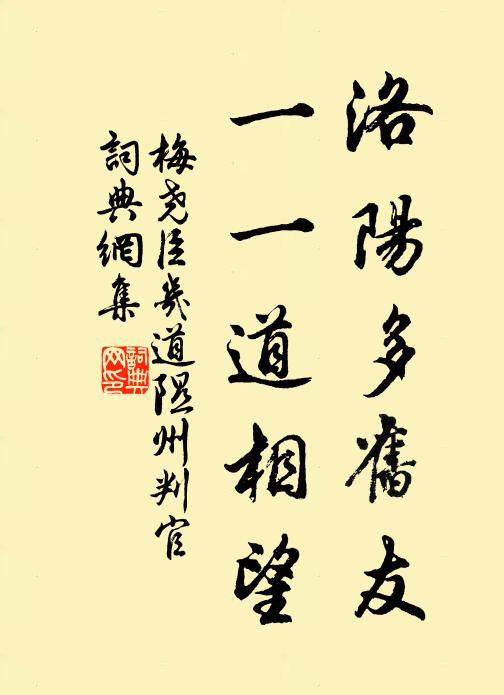 洛陽多舊友
一一道相望
梅堯臣幾道隰州判官
詞典網集
詞典網印